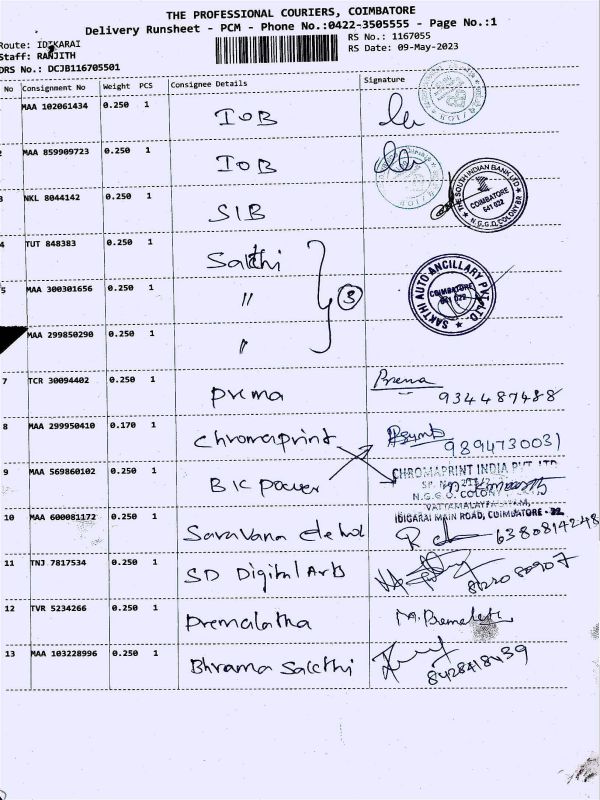 THE PROFESSIONAL COURIERS, COIMBATORE
Delivery Runsheet - PCM - Phone No.:0422-3505555 - Page No.:1
Route: IDIKARAI
RS No.: 1167055
Staff: RANJITH
RS Date: 09-May-2023
DRS No.: DCJB116705501
No Consignment No Weight PCS Consignee Details Signature
MAA 102061434 0.250 1 IOB
2 MAA 859909723 0.250 1 IOB
3 NKL 8044142 0.250 1 SIB
THE SOUTH INDIAN BANK LTD
COIMBATORE
641 022
N.G.G.O. COLONY BR
4 TUT 848383 0.250 1 Sakthi
5 MAA 300301656 0.250 1 "
3
SAKTHI AUTO ANCILLARY PVT LTD
COIMBATORE
641 022
MAA 299850290 0.250 1 "
7 TCR 30094402 0.250 1 Prema
934487488
8 MAA 299950410 0.170 1 Chromaprint
9894730031
9 MAA 569860102 0.250 1 BIC power
CHROMAPRINT INDIA PVT LTD
N.G.G.O. COLONY
VATTAMALAYPALAYAM,
IDIGARAI MAIN ROAD, COIMBATORE - 22.
10 MAA 600081172 0.250 1 Saravana
6380814248
11 TNJ 7817534 0.250 1 SD Digital Arts
12 TVR 5234266 0.250 1 Premalatha M. Premalatha
13 MAA 103228996 0.250 1 Bhrama Sakthi
8428418439